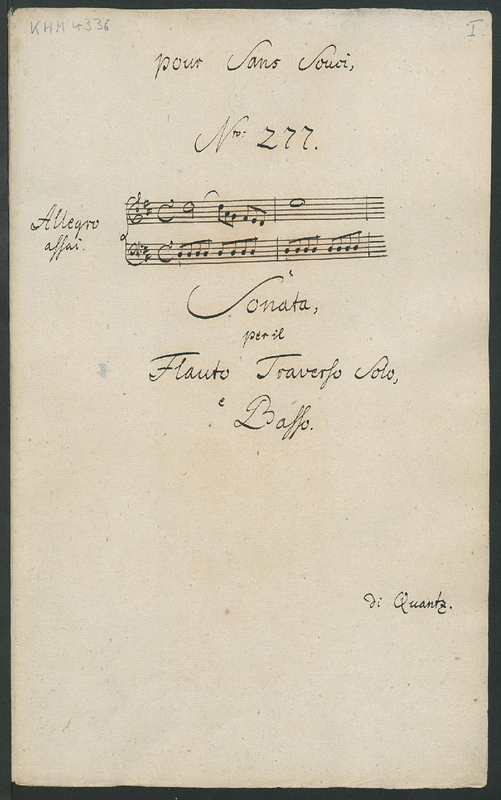 KHM 4336
I
pour Sans Souci,
Nro. 277.
Allegro
assai.
Sonata,
per il
Flauto Traverso Solo,
e
Basso.
di Quantz.